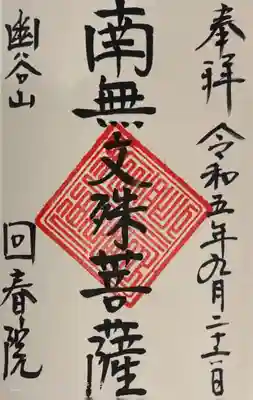 奉拝 令和五年九月二十六日
南無文殊菩薩
幽谷山
回春院